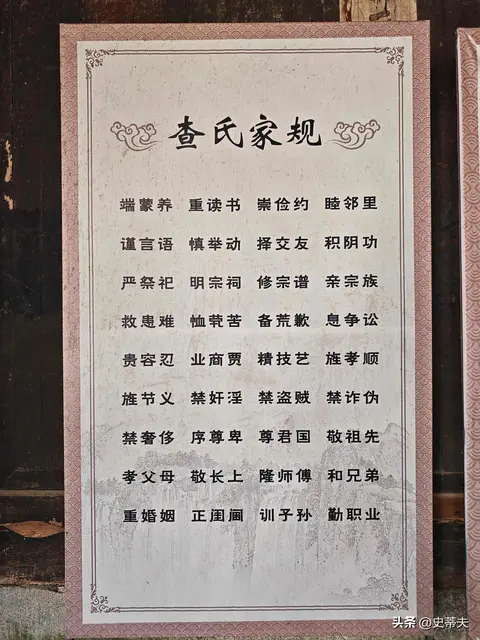 查氏家规
端蒙养 重读书 崇俭约 睦邻里
谨言语 慎举动 择交友 积阴功
严祭祀 明宗祠 修宗谱 亲宗族
救患难 恤茕苦 备荒歉 息争讼
贵容忍 业商贾 精技艺 旌孝顺
旌节义 禁奸淫 禁盗贼 禁诈伪
禁奢侈 序尊卑 尊君国 敬祖先
孝父母 敬长上 隆师傅 和兄弟
重婚姻 正闺阃 训子孙 勤职业
头条 @史蒂夫